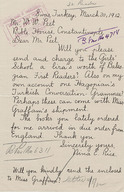 Sivas Turkey, March 30, 1912.
Mr. W. W. Peet
Bible House Constantinople
Dear Mr. Peet
Will you please
send and charge to the Girls'
School in Sivas worth of
gian First Readers! Also on my
own account one Hagopian's
Turkish Conversation Grammar!
Perhaps these can come with Miss
Graffam's shipment.
The books you lately ordered
for me arrived in due order from
England. Thank you
Sincerely yours
Nina E. Rice
Will you kindly send the enclosed
to Miss Graffam